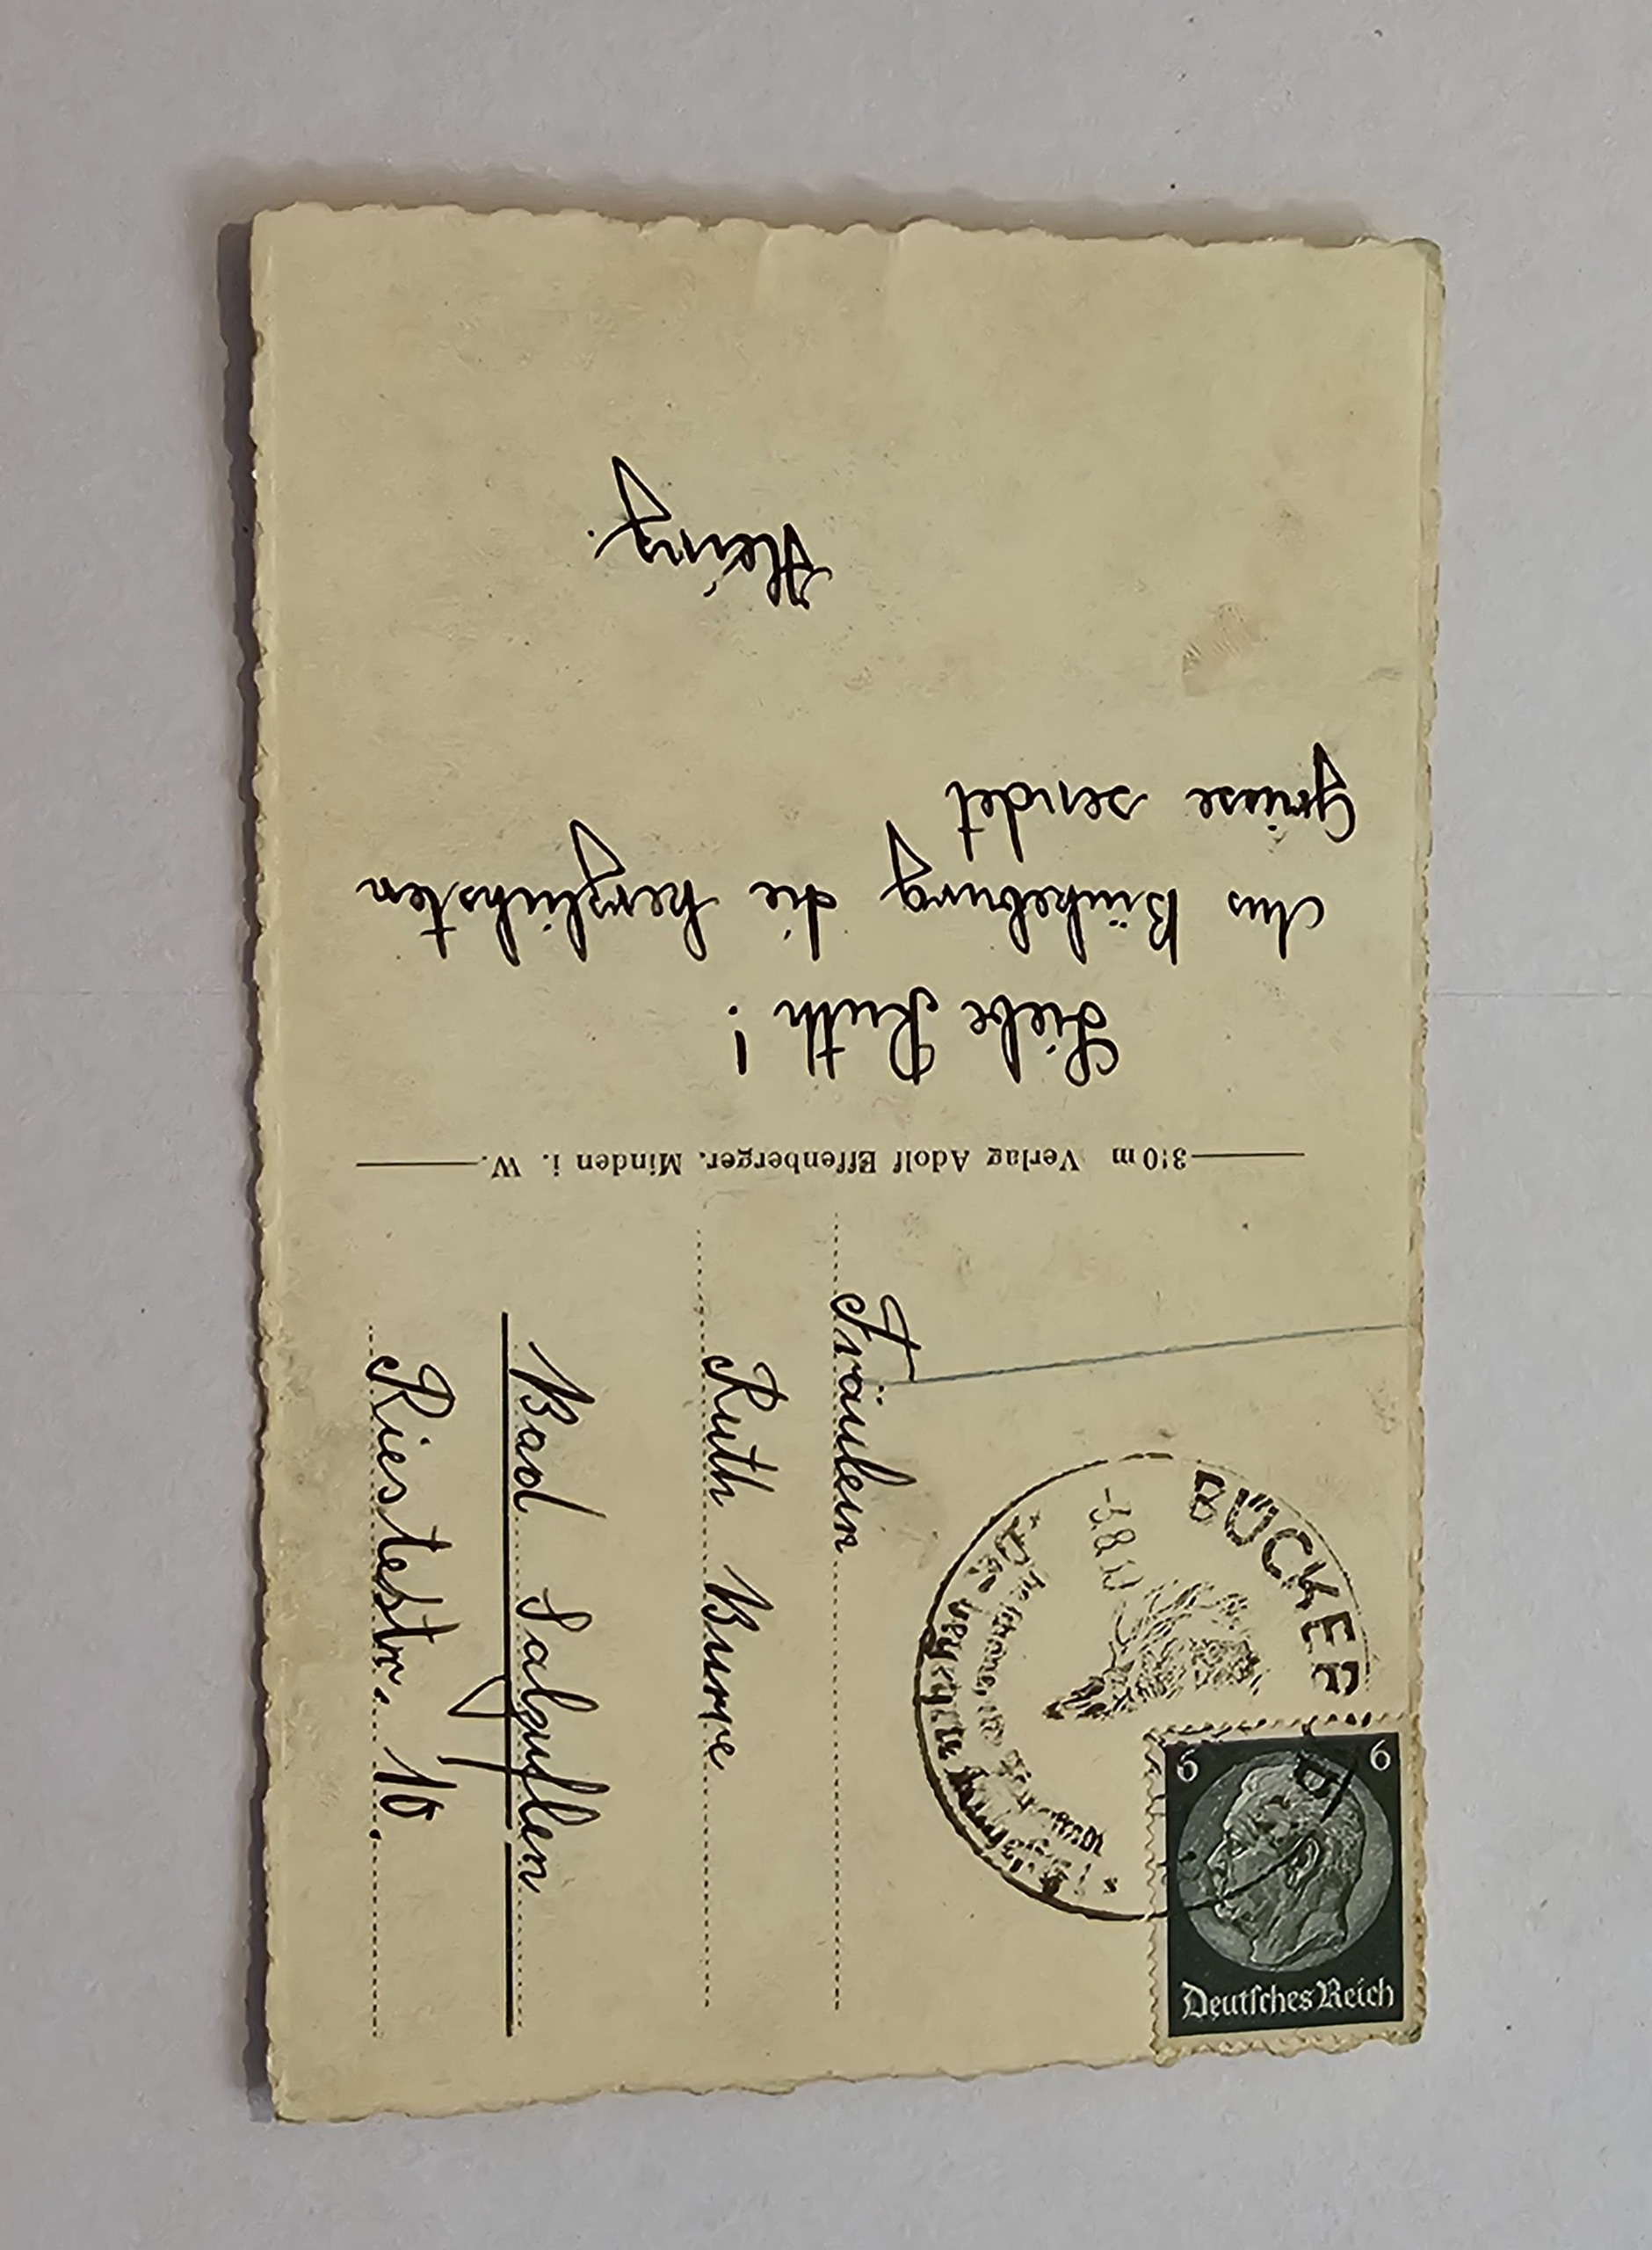 Liebe Ruth!
Aus Bückeburg die herzlichsten
Grüsse sendet
Heinz.
Verlag Adolf Effenberger, Minden i. W.
Fräulein
Ruth Burre
Bad Salzuflen
Riestestr. 10.
BÜCKEB
6 6
Deutsches Reich